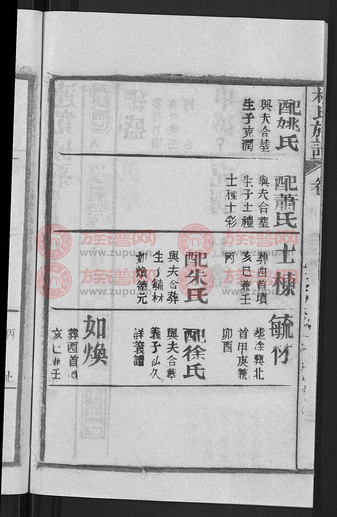 林氏族譜
卷
配姚氏
與夫合塋
生子克潤
配蕭氏
與夫合塋
生子士禮
士棟士彩
士棟
葬西首墳
亥巳兼壬
丙
配朱氏
與夫合葬
生子毓材
如煥德元
毓竹
首甲庚兼
卯酉
配徐氏
與夫合葬
義子弘久
詳義譜
如煥
葬酉首
亥巳兼壬
族谱网
www.zupu.cn